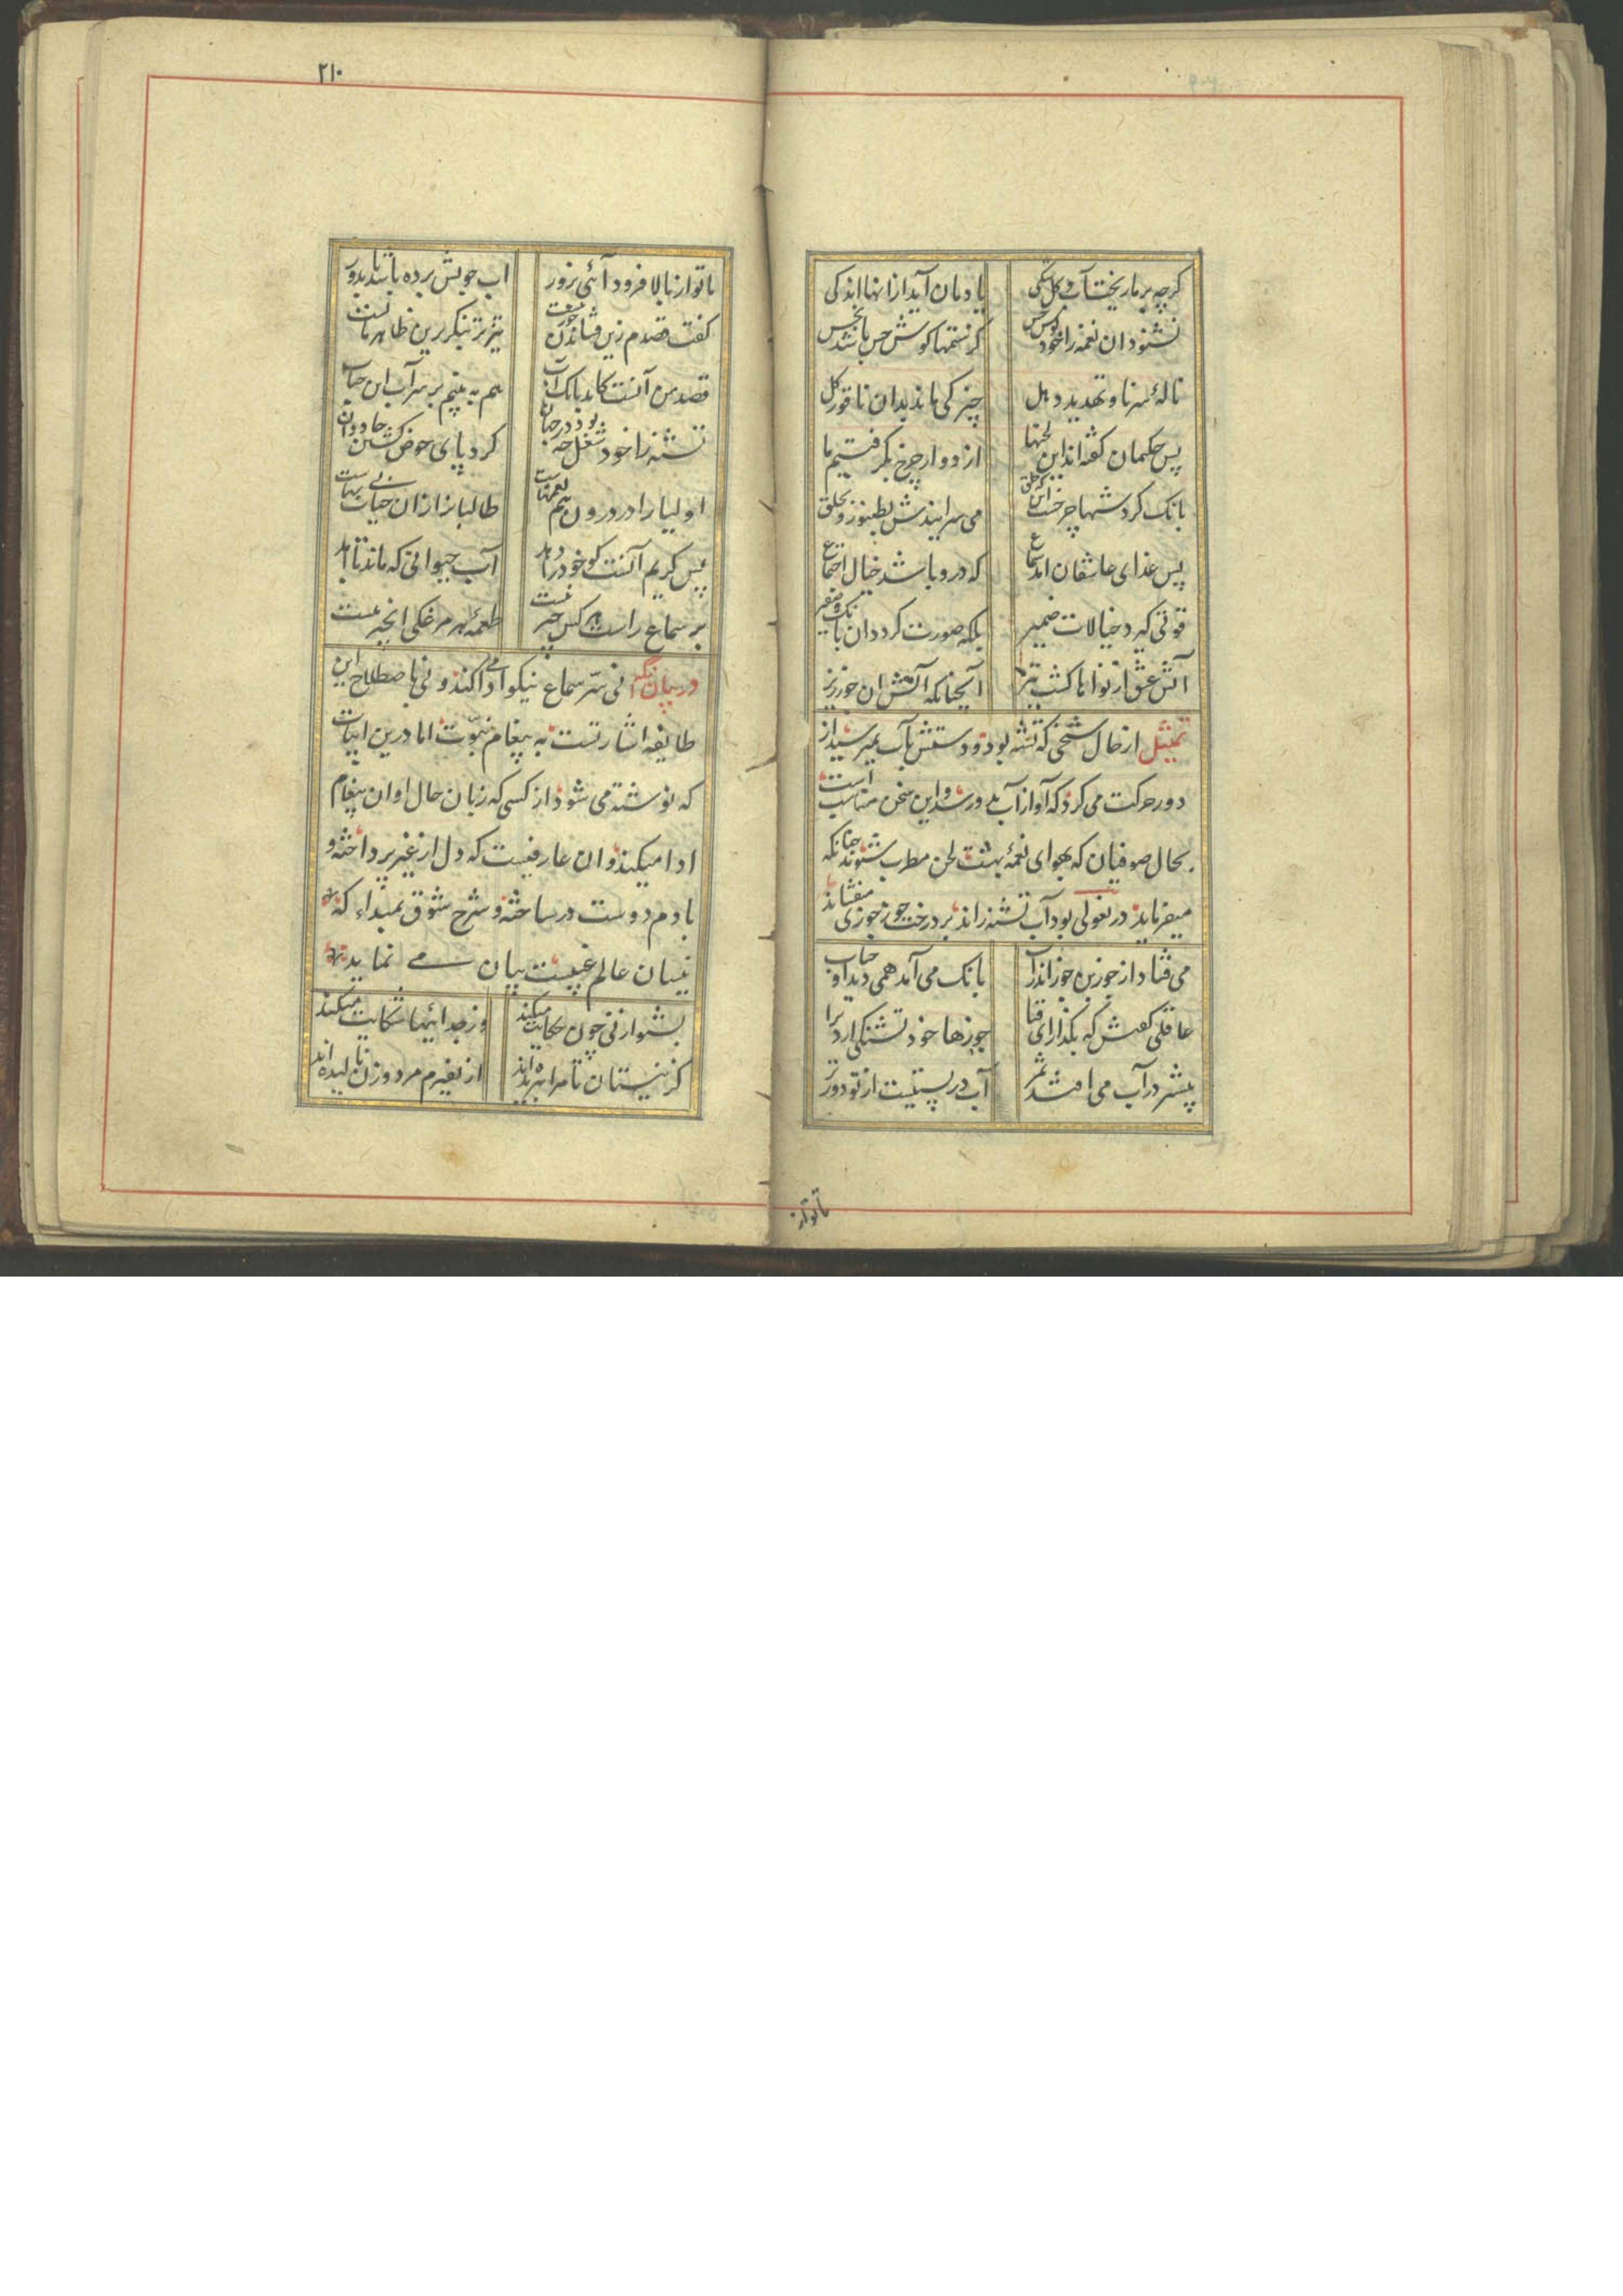 کرچه بر ما ریخت آب و کل شکی یادمان آید ازانها اندکی
نشنود ان نغمه را خود کوش حس کز ستمها کوش حس باشد نجس
نالۀ سرنا و تهدید دهل چیزکی ماند بدان ناقور کل
پس حکیمان کفته اند این لحنها از دوار چرخ بکرفتیم ما
بانک کردشهای چرخست این که خلق می سرایندش بطنبور و بحلق
پس غذای عاشقان امد سماع که درو باشد خیال اجتماع
قوتی کیرد خیالات ضمیر بلکه صورت کردد ان بانک و صفیر
آتش عشق از نواها کشت تیز آنچنانکه آتش ان جوزریز
تمثیل از حال شخصی که تشنه بود و دستش بآب نمیرسید از
دور حرکت می کرد که آواز آب بدو رسد و این سخن مناسب است
بحال صوفیان که بهوای نغمۀ بهشت لحن مطرب شنوند چنانکه
میفرماید در نغولی بود آب تشنه راند بر درخت جوز جوزی میفشاند
می فتاد از جوزبن جوز اندر آب بانک می آمد همی دید او حباب
عاقلی کفتش که بکذار ای فتا جوزها خود تشنکی ارد ترا
بیشتر در آب می افتد ثمر آب در پستیست از تو دورتر
تا تو از
۲۱۰
تا تو از بالا فرود آئی بزور اب جویش برده باشد بدور
کفت قصدم زین فشاندن جوز نیست تیزتر بنکر برین ظاهر مایست
قصد من آنست کاید بانک آب هم به بینم بر سر آب این حباب
تشنه را خود شغل چه بود در جهان کرد پای حوض کشتن جاودان
اولیا را در درون هم نغمهاست طالبانرا زان حیات بی بهاست
پس کریم آنست کو خود را دهد آب حیوانی که ماند تا ابد
بر سماع راست هر کس چیر نیست طعمۀ هر مرغکی انجیر نیست
در بیان آنکه نی سرّ سماع نیکو ادا می کند و نی باصطلاح این
طایفه اشارتست به پیغام نبوّت اما درین ابیات
که نوشته می شود از کسی که زبان حال او ان پیغام
ادا میکند و ان عارفیست که دل از غیر پرداخته و
با دم دوست در ساخته و شرح شوق بمبداء که
نیسان عالم غیبست بیان می نماید
بشنو از نی چون حکایت میکند وز جدائیها شکایت میکند
کز نیستان تا مرا ببریده اند از نفیرم مرد و زن نالیده اند